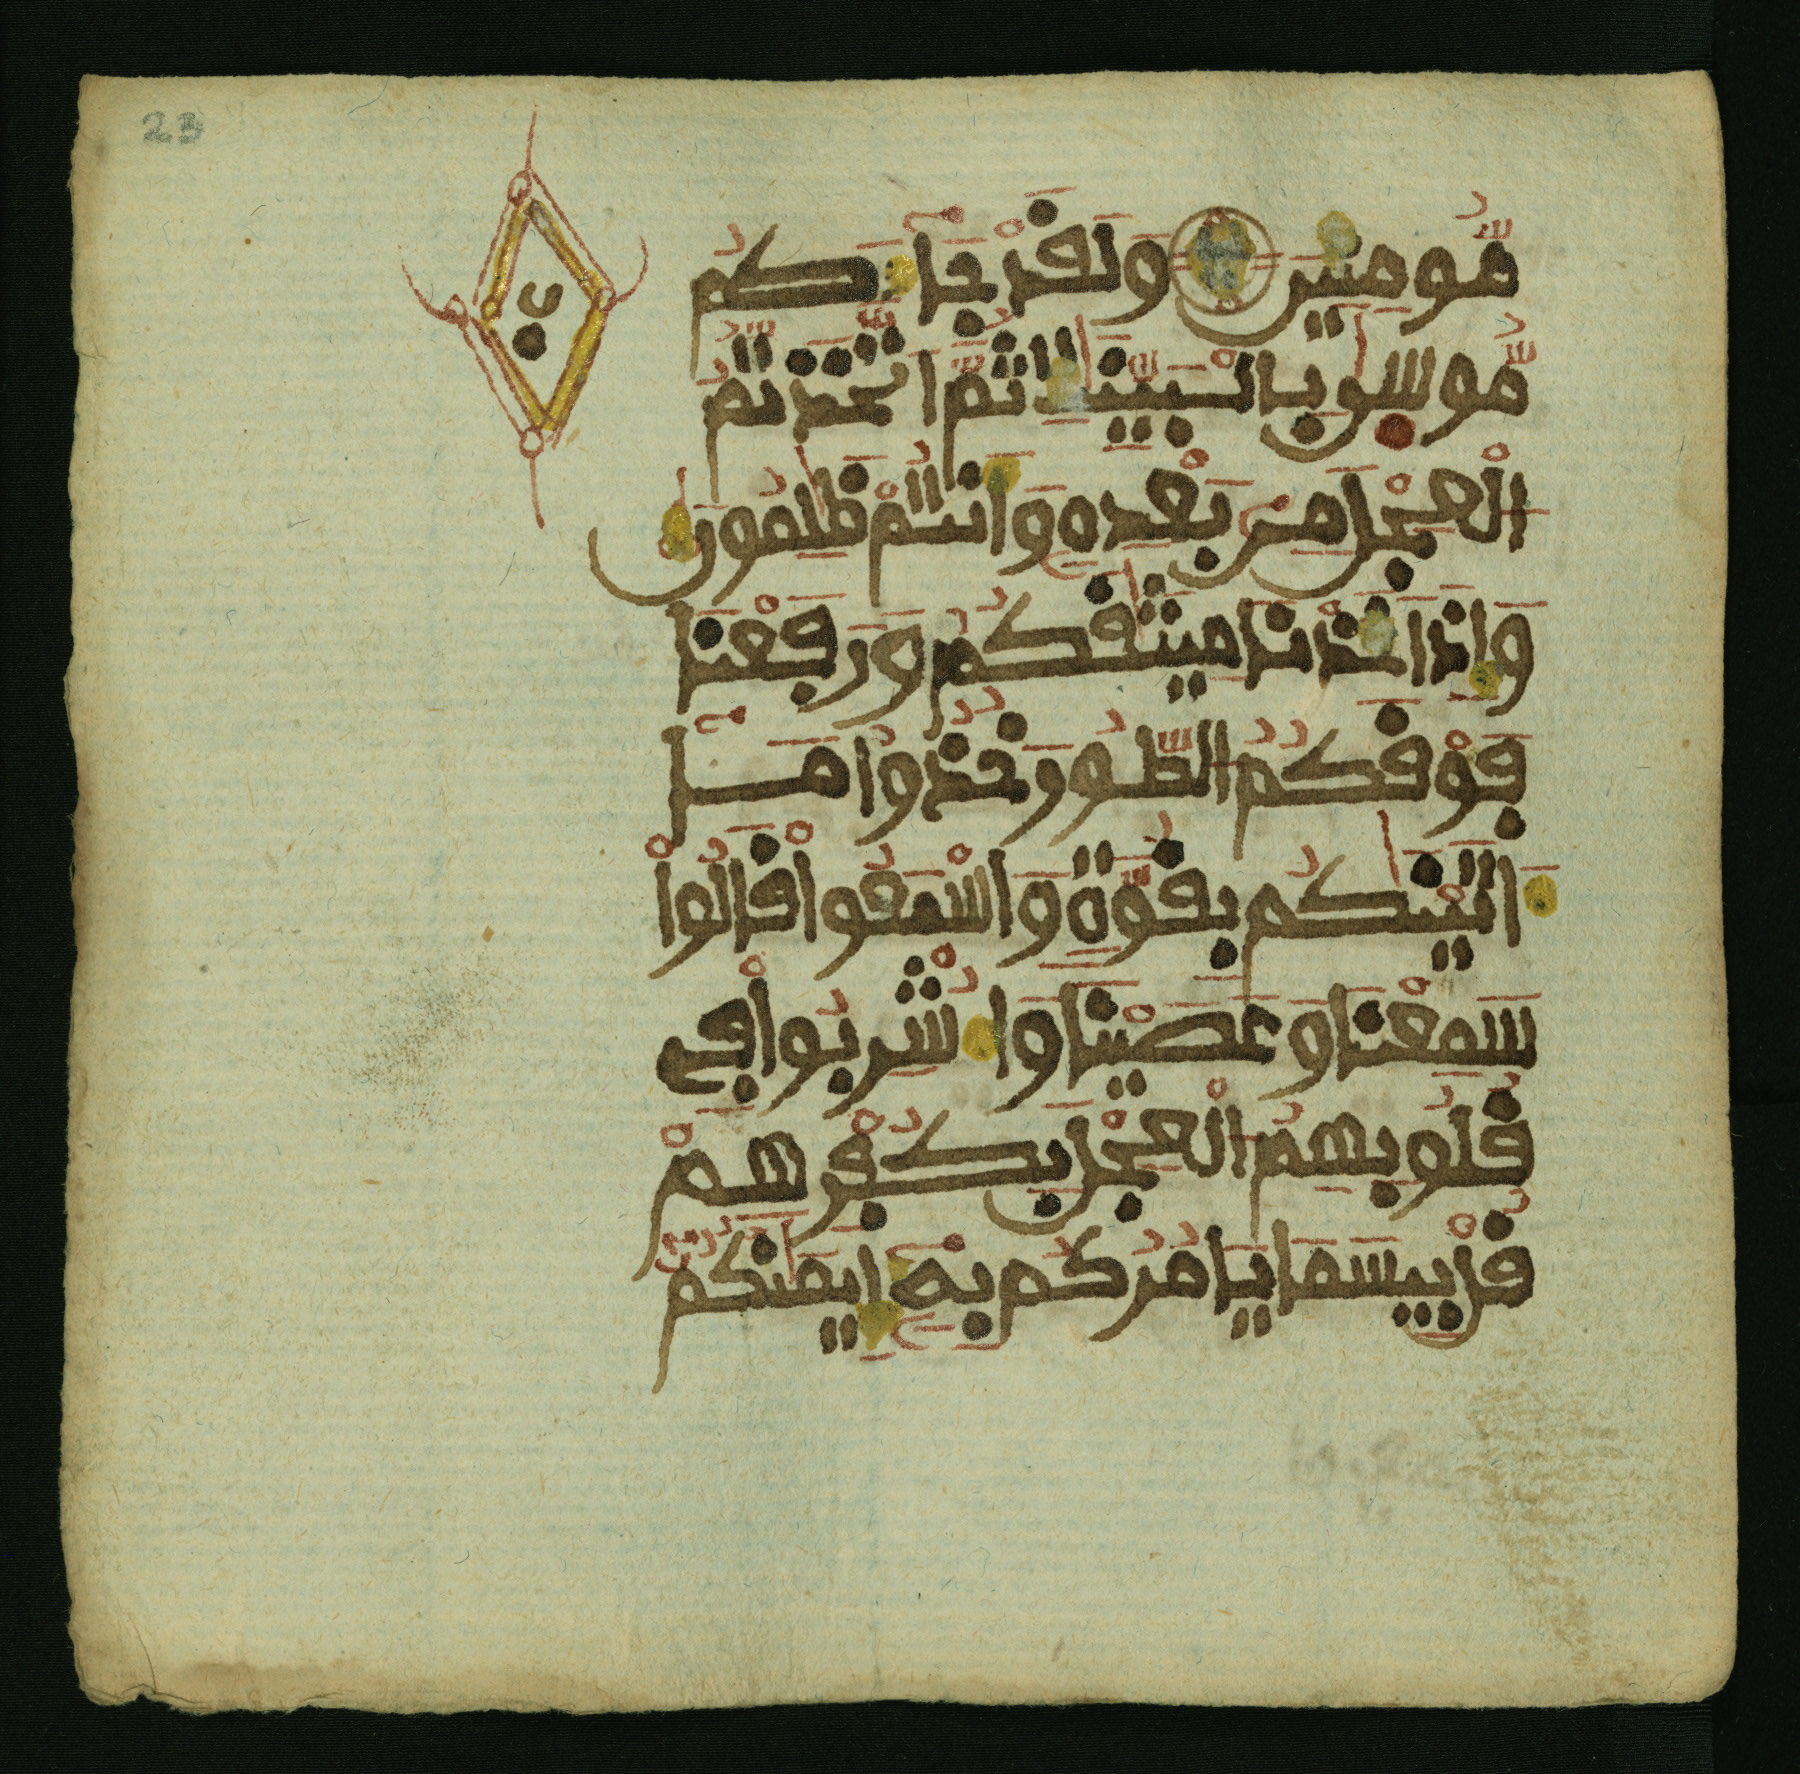 23
مُّومِنِينَ وَلَقَدْ جَاءَكُم
مُّوسَى بِالْبَيِّنَتِ ثُمَّ اتَّخَذتُّمُ
الْعِجْلَ مِن بَعْدِهِ وَأَنتُمْ ظَلِمُونَ
وَإِذْ أَخَذْنَا مِيثَقَكُمْ وَرَفَعْنَا
فَوْقَكُمُ الطُّورَ خُذُوا مَا
ءَاتَيْنَكُم بِقُوَّةٍ وَاسْمَعُوا قَالُوا
سَمِعْنَا وَعَصَيْنَا وَأُشْرِبُوا فِي
قُلُوبِهِمُ الْعِجْلَ بِكُفْرِهِمْ
قُلْ بِيسَمَا يَامُرُكُم بِهِ إِيمَنُكُمُ